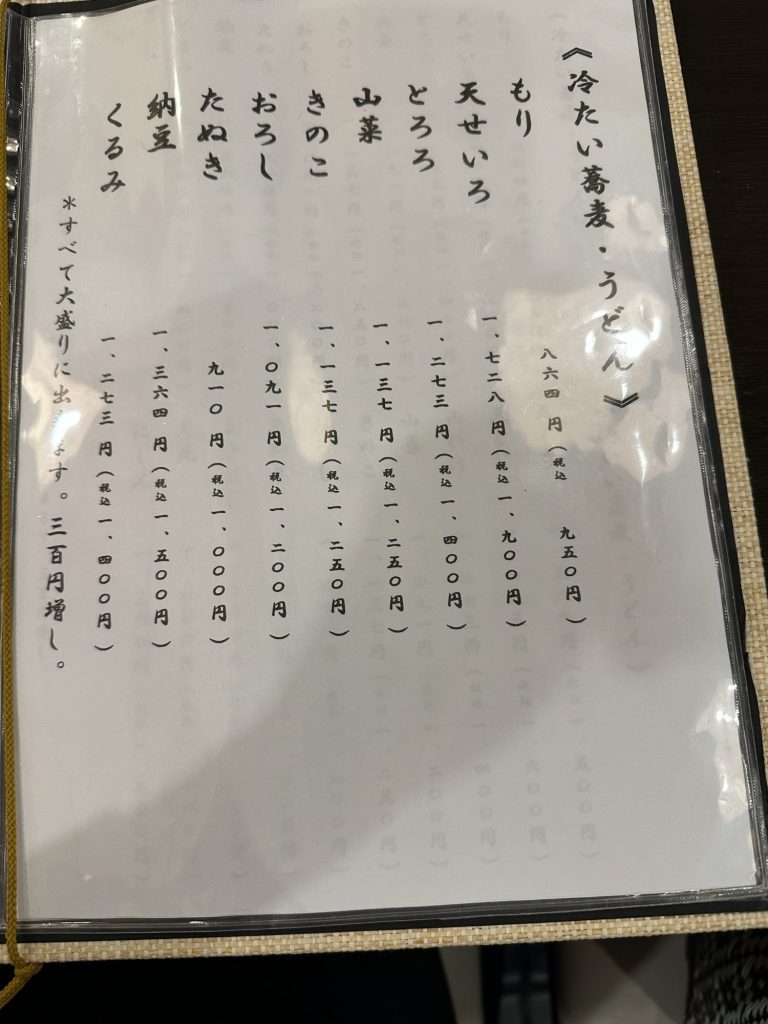 《冷たい蕎麦・うどん》
もり 八六四円（税込 九五〇円）
天せいろ 一、七二八円（税込一、九〇〇円）
とろろ 一、二七三円（税込一、四〇〇円）
山菜 一、一三七円（税込一、二五〇円）
きのこ 一、一三七円（税込一、二五〇円）
おろし 一、〇九一円（税込一、二〇〇円）
たぬき 九一〇円（税込一、〇〇〇円）
納豆 一、三六四円（税込一、五〇〇円）
くるみ 一、二七三円（税込一、四〇〇円）
＊すべて大盛りに出来ます。三百円増し。